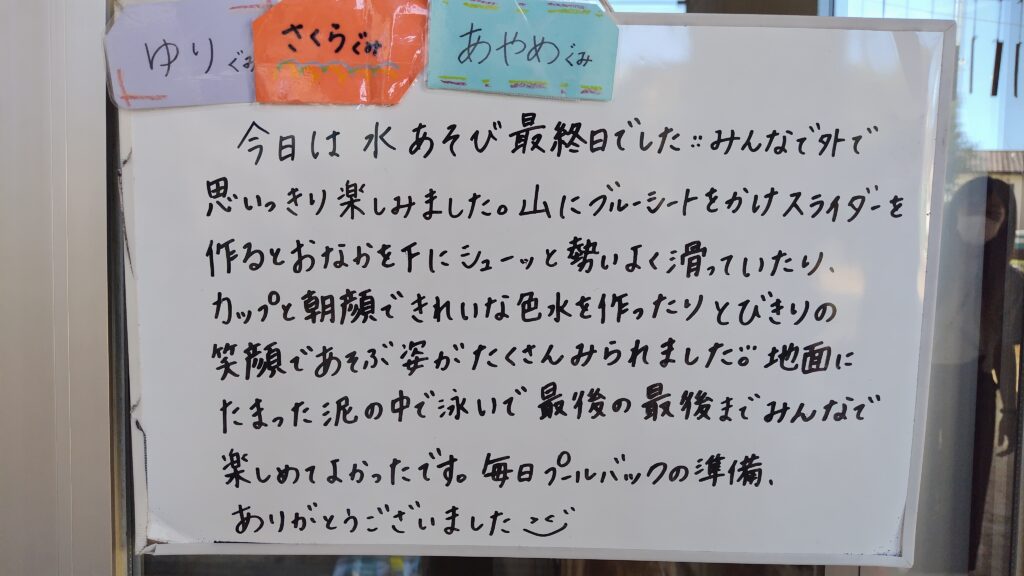 ゆりぐみ さくらぐみ あやめぐみ
今日は水あそび最終日でした!!みんなで外で
思いっきり楽しみました。山にブルーシートをかけスライダーを
作るとおなかを下にシューッと勢いよく滑っていたり、
カップと朝顔できれいな色水を作ったりとびきりの
笑顔であそぶ姿がたくさんみられました!! 地面に
たまった泥の中で泳いで最後の最後までみんなで
楽しめてよかったです。毎日プールバックの準備、
ありがとうございました